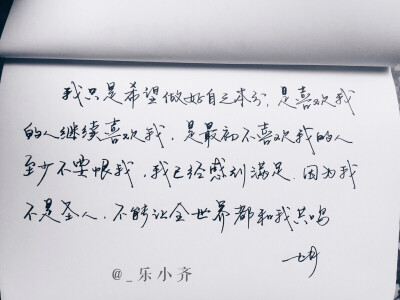 我只是希望做好自己本分，是喜欢我
的人继续喜欢我，是最初不喜欢我的人
至少不要恨我，我已经感到满足．因为我
不是圣人．不能让全世界都和我共鸣
@_乐小齐